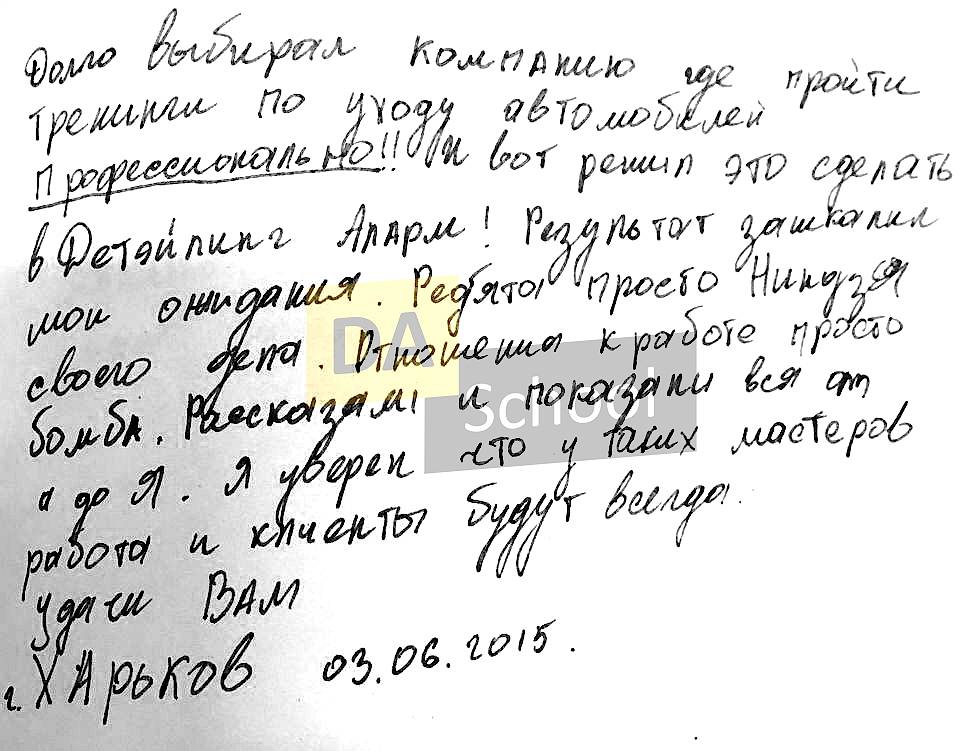 Долго выбирал компанию где пройти
тренинги по уходу автомобилей
профессионально!! И вот решил это сделать
в Детэйлинг Аларм! Результат зашкалил
мои ожидания. Ребята просто Ниндзя
своего дела. Отношения к работе просто
бомба. Рассказали и показали вся от
а до Я. Я уверен что у таких мастеров
работа и клиенты будут всегда.
удачи ВАМ
г. ХАрьков 03.06.2015.
DA
School